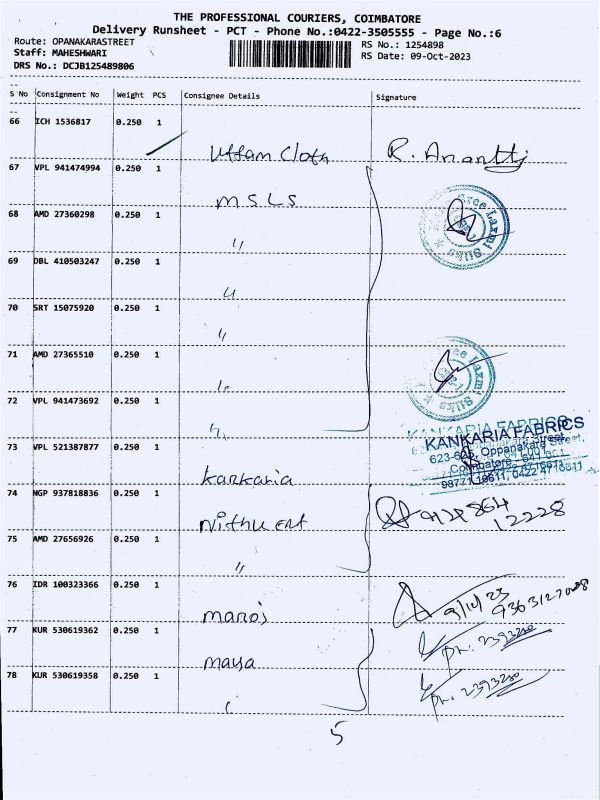 THE PROFESSIONAL COURIERS, COIMBATORE
Delivery Runsheet - PCT - Phone No.:0422-3505555 - Page No.:6
Route: OPANAKARASTREET
Staff: MAHESHWARI
DRS No.: DCJB125489806
RS No.: 1254898
RS Date: 09-Oct-2023
S No Consignment No Weight PCS Consignee Details Signature
66 ICH 1536817 0.250 1
Uttam Cloth R. Ananthj
67 VPL 941474994 0.250 1
MSLS
68 AMD 27360298 0.250 1
"
69 DBL 410503247 0.250 1
"
70 SRT 15075920 0.250 1
"
71 AMD 27365510 0.250 1
"
72 VPL 941473692 0.250 1
"
KANKARIA FABRICS
623-625, Oppanakara Street,
Coimbatore - 641 001
98771 16611, 0422 4716611
73 VPL 521387877 0.250 1
kankaria
74 NGP 937818836 0.250 1
Nithu ent
75 AMD 27656926 0.250 1
"
76 IDR 100323366 0.250 1
manoj 9/10/23
77 KUR 530619362 0.250 1
maya ph. 2393280
78 KUR 530619358 0.250 1
ph. 2393280
5